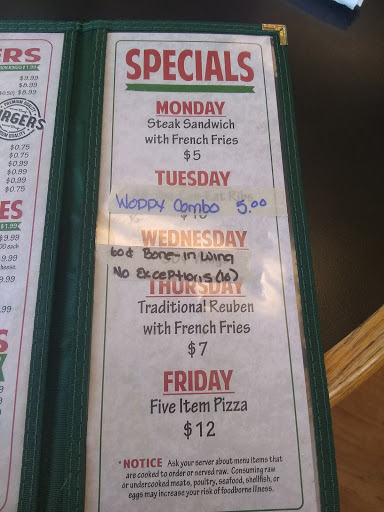 ERS
$1.99
$9.99
$8.99
$8.99
PREMIUM QUALITY
RGERS
$0.75
$0.75
$0.99
$0.99
$0.75
$0.99
ES
$9.99
.00 each
$9.99
cheese.
$9.99
.99
S
SPECIALS
MONDAY
Steak Sandwich
with French Fries
$5
TUESDAY
WOPPY Combo 5.00
WEDNESDAY
60¢ Bone-in Wing
No Exceptions (6)
THURSDAY
Traditional Reuben
with French Fries
$7
FRIDAY
Five Item Pizza
$12
*NOTICE Ask your server about menu items that
are cooked to order or served raw. Consuming raw
or undercooked meats, poultry, seafood, shellfish, or
eggs may increase your risk of foodborne illness.